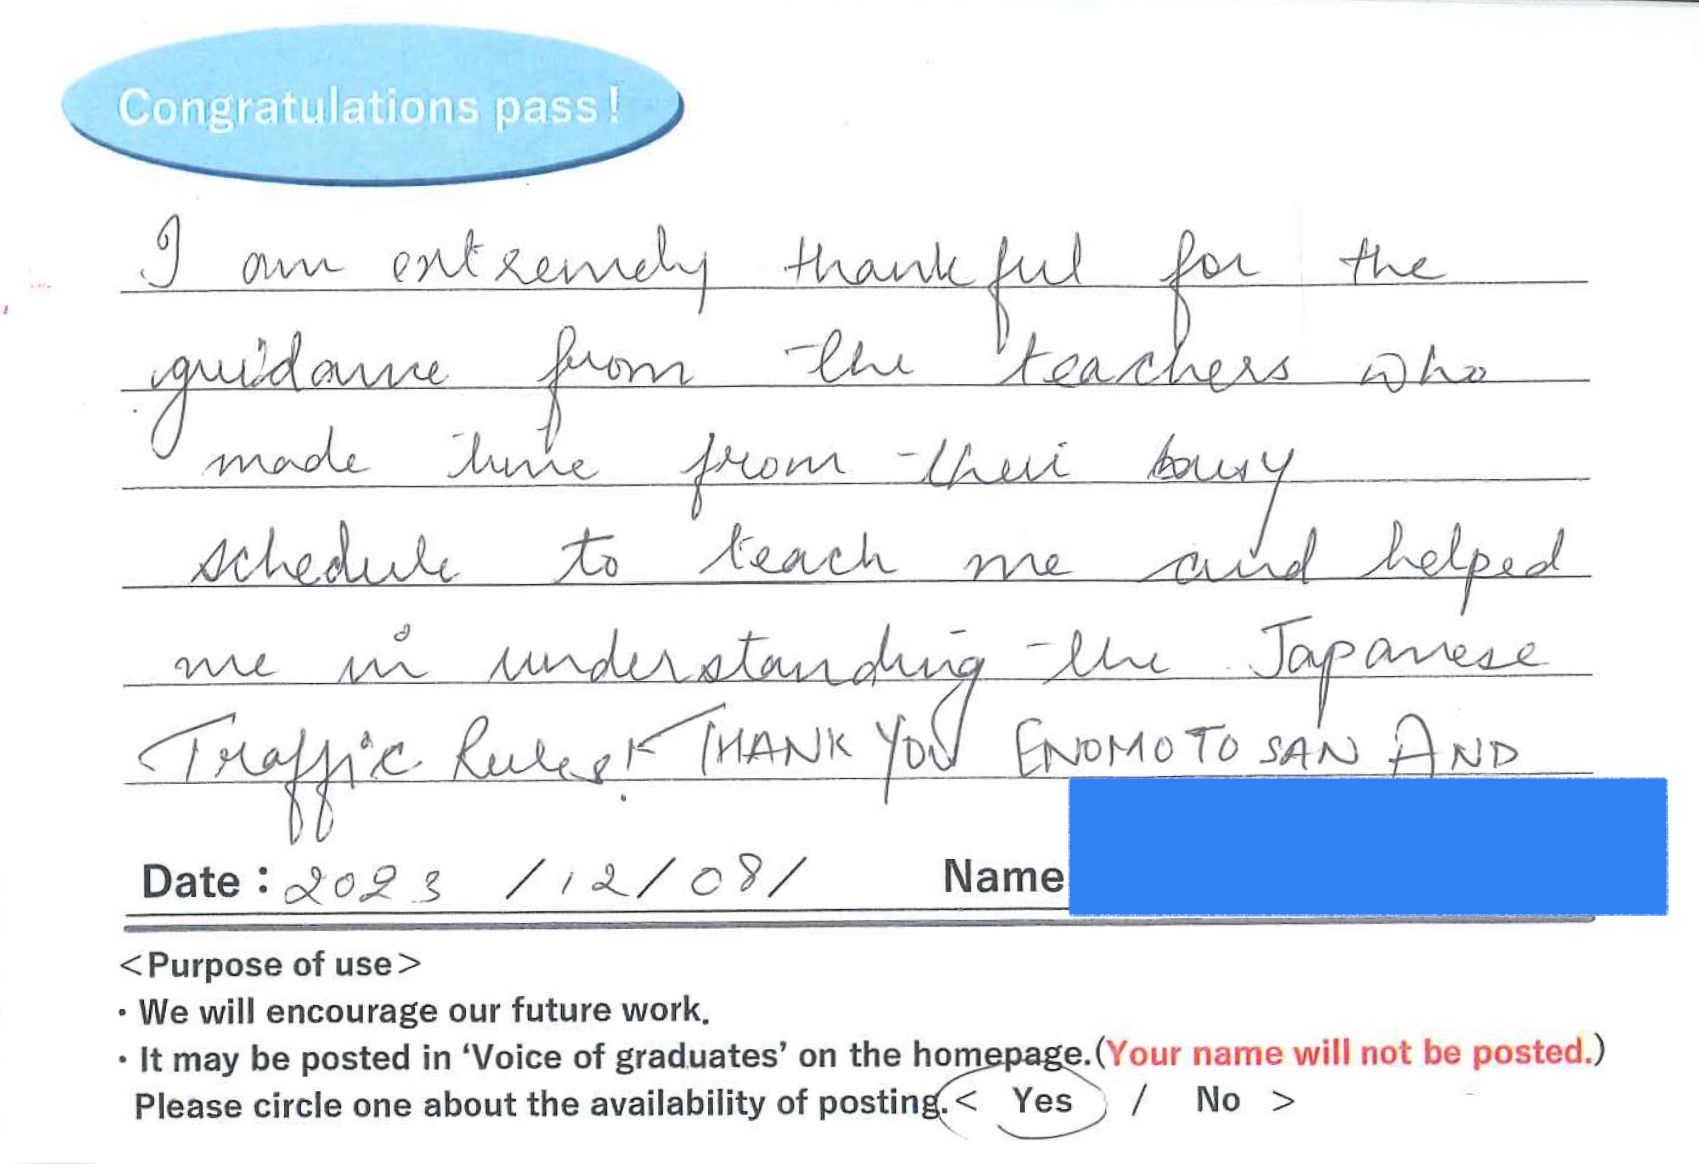 Congratulations pass!
I am extremely thankful for the
guidance from the teachers who
made time from their busy
schedule to teach me and helped
me in understanding the Japanese
Traffic Rules! THANK YOU ENOMOTO SAN AND
Date : 2023 /12/08/ Name
<Purpose of use>
・We will encourage our future work.
・It may be posted in ‘Voice of graduates’ on the homepage.(Your name will not be posted.)
Please circle one about the availability of posting.< Yes / No >